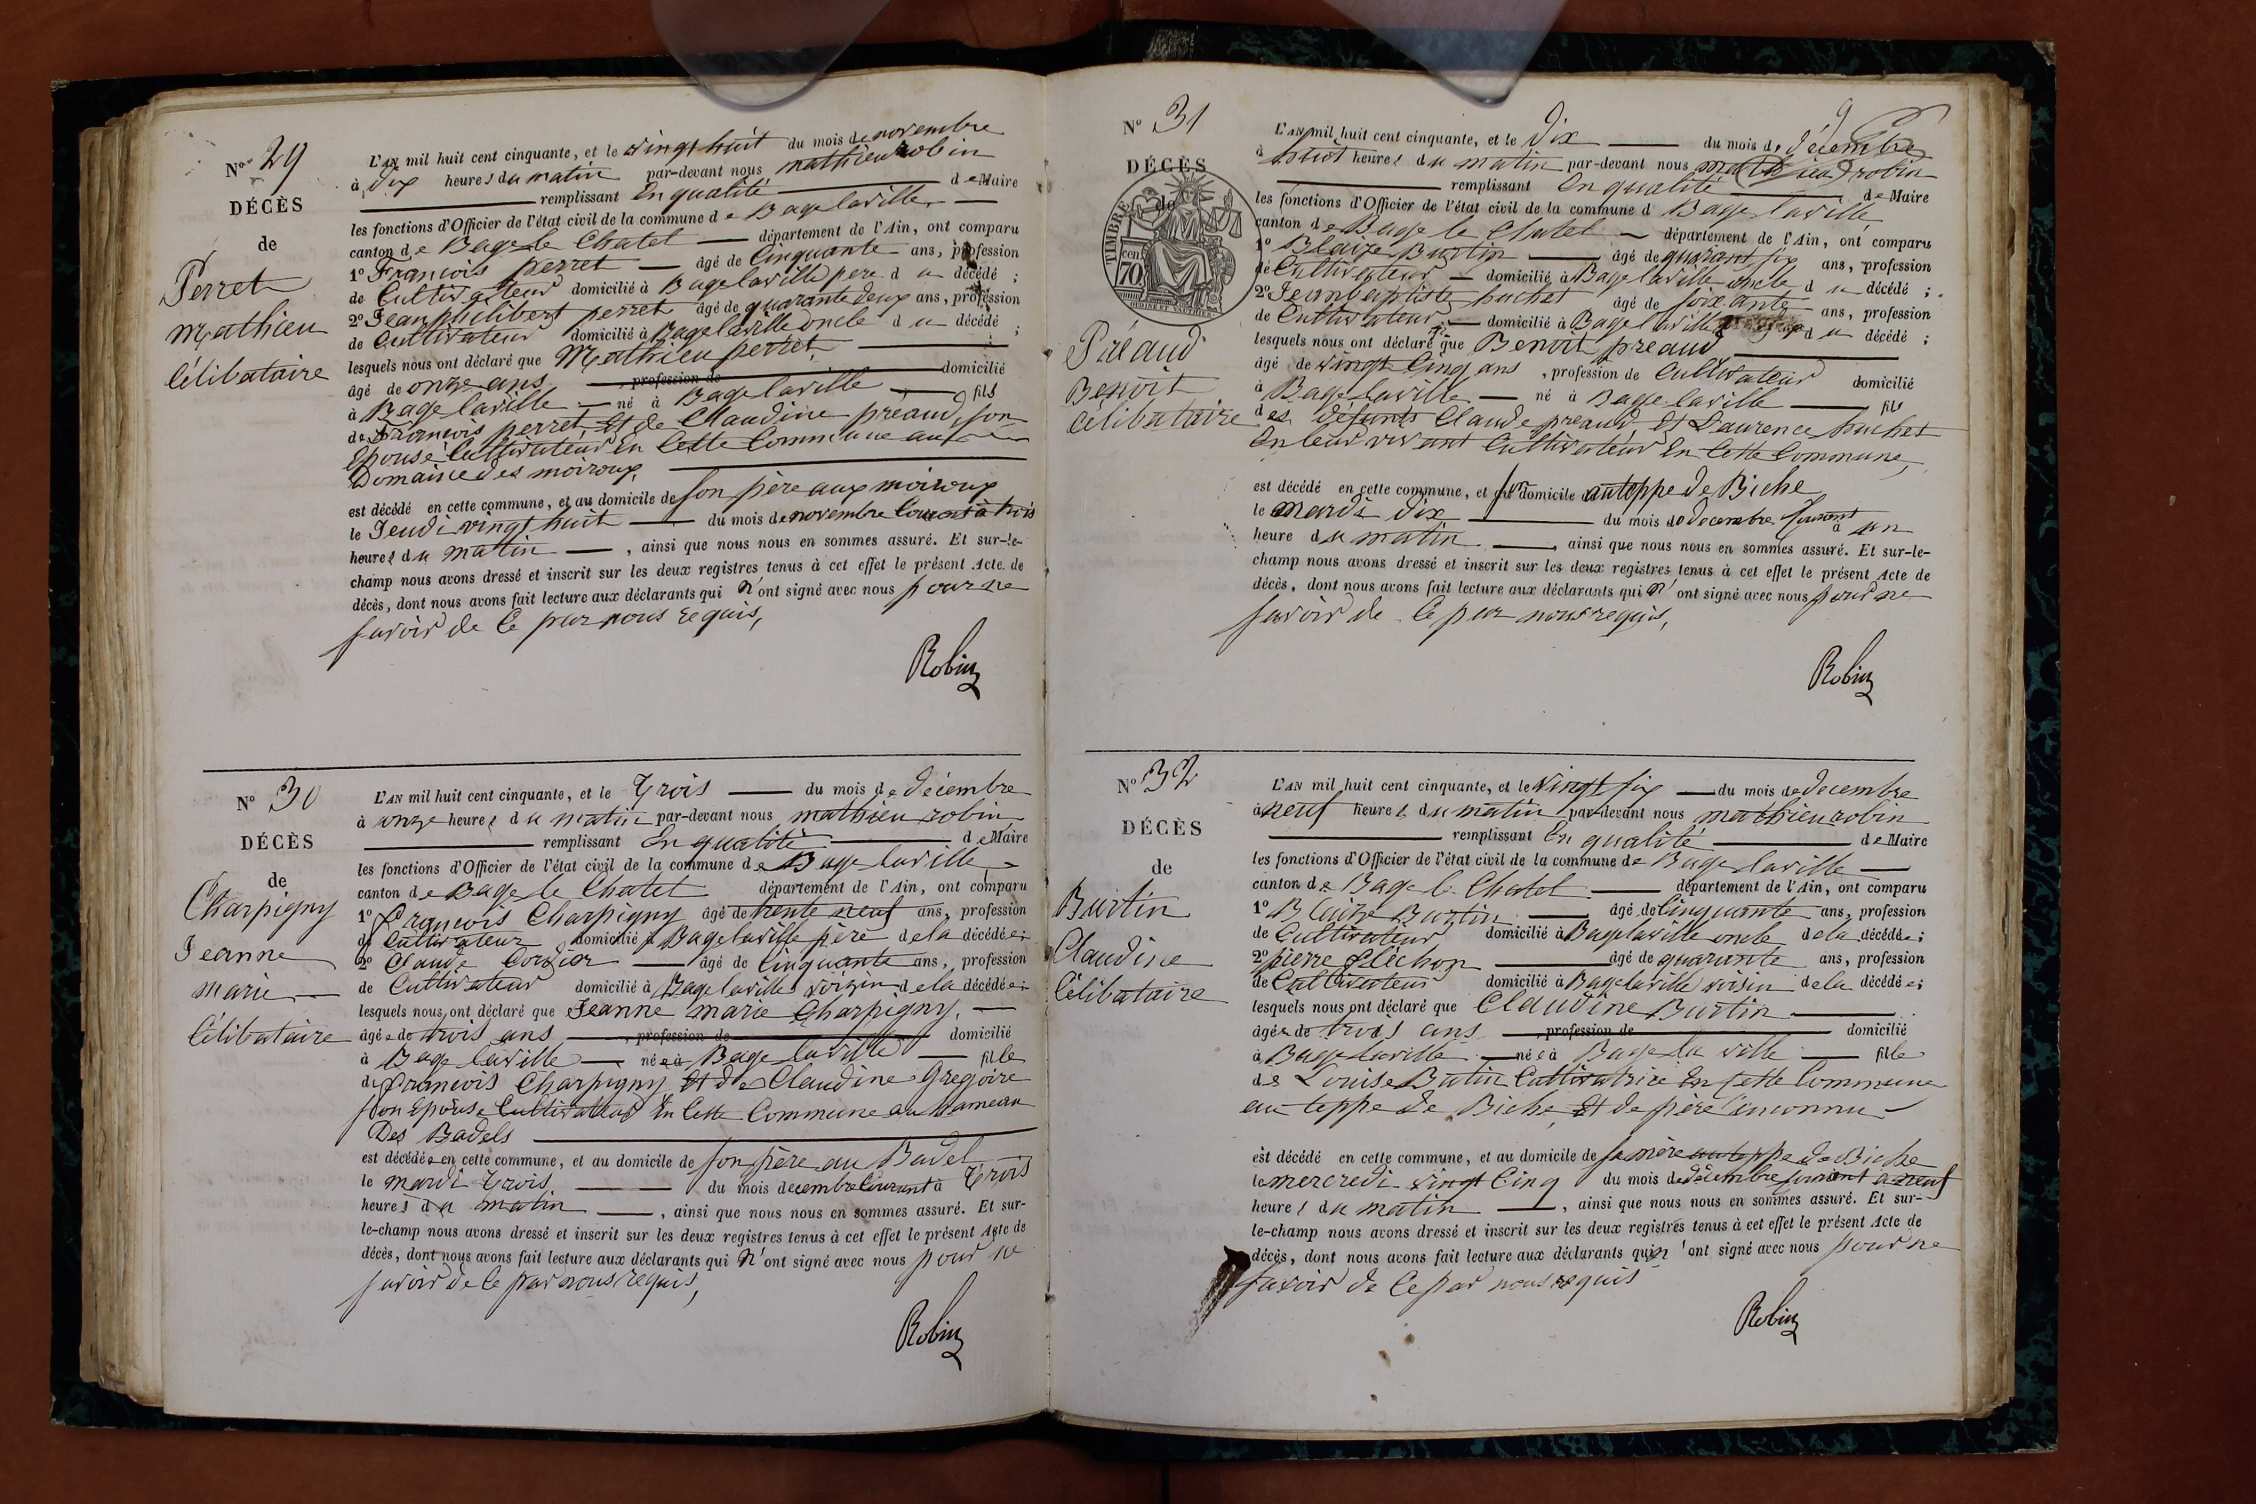 Nº 29
DÉCÈS
de
Perret
Mathieu
Célibataire
L'AN mil huit cent cinquante, et le vingt huit du mois de novembre
à dix heures du matin par-devant nous mathieu robin
remplissant En qualité de Maire
les fonctions d'Officier de l'état civil de la commune de Bage laville
canton de Bage le Chatel département de l'Ain, ont comparu
1º François perret âgé de Cinquante ans, profession
de Cultivateur domicilié à Bage laville pere du décédé ;
2º Jean philibert perret âgé de quarante deux ans, profession
de Cultivateur domicilié à Bage laville oncle du décédé ;
lesquels nous ont déclaré que Mathieu perret
âgé de onze ans profession de domicilié
à Bage laville né à Bage laville fils
de François perret Et de Claudine préaud son
Epouse Cultivateur En Cette Commune au
Domaine des moiroux,
est décédé en cette commune, et au domicile de son père aux moiroux
le Jeudi vingt huit du mois de novembre Courant à trois
heures du matin , ainsi que nous nous en sommes assuré. Et sur-le-
champ nous avons dressé et inscrit sur les deux registres tenus à cet effet le présent Acte de
décès, dont nous avons fait lecture aux déclarants qui n'ont signé avec nous pour ne
savoir de Ce par nous requis,
Robin
Nº 30
DÉCÈS
de
Charpigny
Jeanne
marie
Célibataire
L'AN mil huit cent cinquante, et le Trois du mois de décembre
à onze heures du matin par-devant nous mathieu robin
remplissant En qualité de Maire
les fonctions d'Officier de l'état civil de la commune de Bage laville
canton de Bage le Chatel département de l'Ain, ont comparu
1º François Charpigny âgé de trente neuf ans, profession
de Cultivateur domicilié à Bage laville père de la décédée ;
2º Claude Cordier âgé de Cinquante ans, profession
de Cultivateur domicilié à Bage laville voizin de la décédée ;
lesquels nous ont déclaré que Jeanne marie Charpigny,
âgée de trois ans , profession de domicilié
à Bage laville née à Bage laville fille
de François Charpigny Et de Claudine Gregoire
son Epouse Cultivateur En Cette Commune au hameau
Des Badels
est décédée en cette commune, et au domicile de son père au Badel
le mardi Trois du mois decembre Courant à Trois
heures du matin , ainsi que nous nous en sommes assuré. Et sur-
le-champ nous avons dressé et inscrit sur les deux registres tenus à cet effet le présent Acte de
décès, dont nous avons fait lecture aux déclarants qui n'ont signé avec nous pour ne
savoir de Ce par nous requis,
Robin
9
Nº 31
DÉCÈS
de
TIMBRE
70 cen
Préaud
Benoit
Célibataire
L'AN mil huit cent cinquante, et le Dix du mois de décembre
à huit heures du matin par-devant nous mathieu robin
remplissant En qualité de Maire
les fonctions d'Officier de l'état civil de la commune d Bage laville
canton de Bage le Chatel département de l'Ain, ont comparu
1º Blaize Burtin âgé de quarant six ans, profession
de Cultivateur domicilié à Bage laville oncle du décédé ;
2º Jeanbaptiste huchet âgé de soixante ans, profession
de Cultivateur domicilié à Bage laville du décédé ;
lesquels nous ont déclaré que Benoit preaud
âgé de vingt Cinq ans , profession de Cultivateur domicilié
à Bage laville né à Bage laville fils
des défunts Claude preaud Et Laurence huchet
En leur vivant Cultivateur En Cette Commune,
est décédé en cette commune, et son domicile au teppe de Biche
le mardi dix du mois de decembre Courant à un
heure du matin , ainsi que nous nous en sommes assuré. Et sur-le-
champ nous avons dressé et inscrit sur les deux registres tenus à cet effet le présent Acte de
décès, dont nous avons fait lecture aux déclarants qui n'ont signé avec nous pour ne
savoir de Ce par nous requis,
Robin
Nº 32
DÉCÈS
de
Burtin
Claudine
Célibataire
L'AN mil huit cent cinquante, et le Vingt six du mois de decembre
à neuf heures du matin par-devant nous mathieu robin
remplissant En qualité de Maire
les fonctions d'Officier de l'état civil de la commune de Bage laville
canton de Bage le Chatel département de l'Ain, ont comparu
1º Blaize Burtin âgé de Cinquante ans, profession
de Cultivateur domicilié à Bage laville oncle de la décédée ;
2º pierre pléchon âgé de quarante ans, profession
de Cultivateur domicilié à Bage laville voisin de la décédée ;
lesquels nous ont déclaré que Claudine Burtin
âgée de trois ans , profession de domicilié
à Bage laville née à Bage la ville fille
de Louise Butin Cultivatrice En Cette Commune
au teppe de Biche, Et de père inconnu
est décédé en cette commune, et au domicile de sa mère au teppe de Biche
le mercredi vingt Cinq du mois de décembre Courant à neuf
heures du matin , ainsi que nous nous en sommes assuré. Et sur-
le-champ nous avons dressé et inscrit sur les deux registres tenus à cet effet le présent Acte de
décès, dont nous avons fait lecture aux déclarants qui n'ont signé avec nous pour ne
savoir de Ce par nous requis
Robin